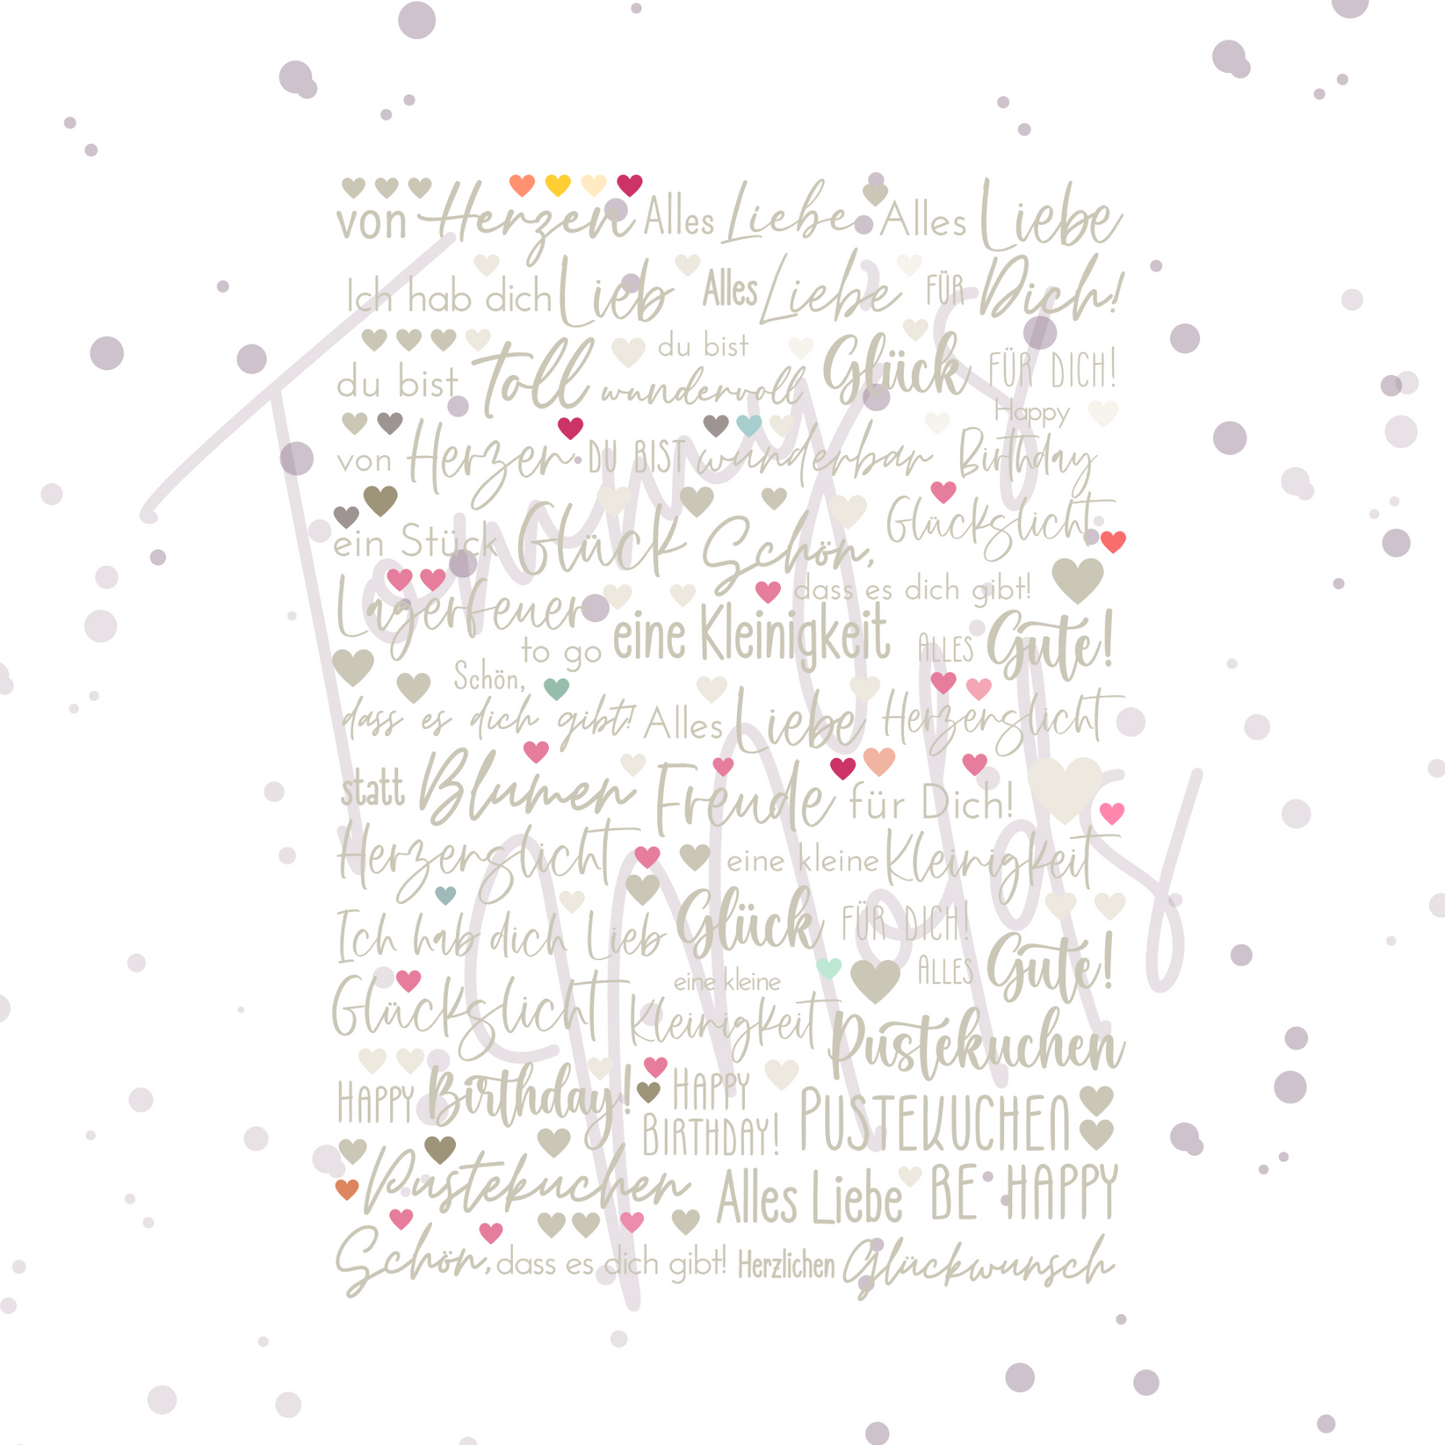 von Herzen Alles Liebe Alles Liebe
Ich hab dich Lieb Alles Liebe FÜR Dich!
du bist Toll du bist wundervoll Glück FÜR DICH!
von Herzen DU BIST wunderbar Happy Birthday
ein Stück Glück Schön, Glückslicht
dass es dich gibt!
Lagerfeuer to go eine Kleinigkeit ALLES Gute!
Schön,
dass es dich gibt! Alles Liebe Herzenslicht
statt Blumen Freude für Dich!
Herzenslicht eine kleine Kleinigkeit
Ich hab dich Lieb Glück FÜR DICH!
Glückslicht eine kleine Kleinigkeit ALLES Gute!
Pustekuchen
HAPPY Birthday! HAPPY BIRTHDAY! PUSTEKUCHEN
Pustekuchen Alles Liebe BE HAPPY
Schön, dass es dich gibt! Herzlichen Glückwunsch